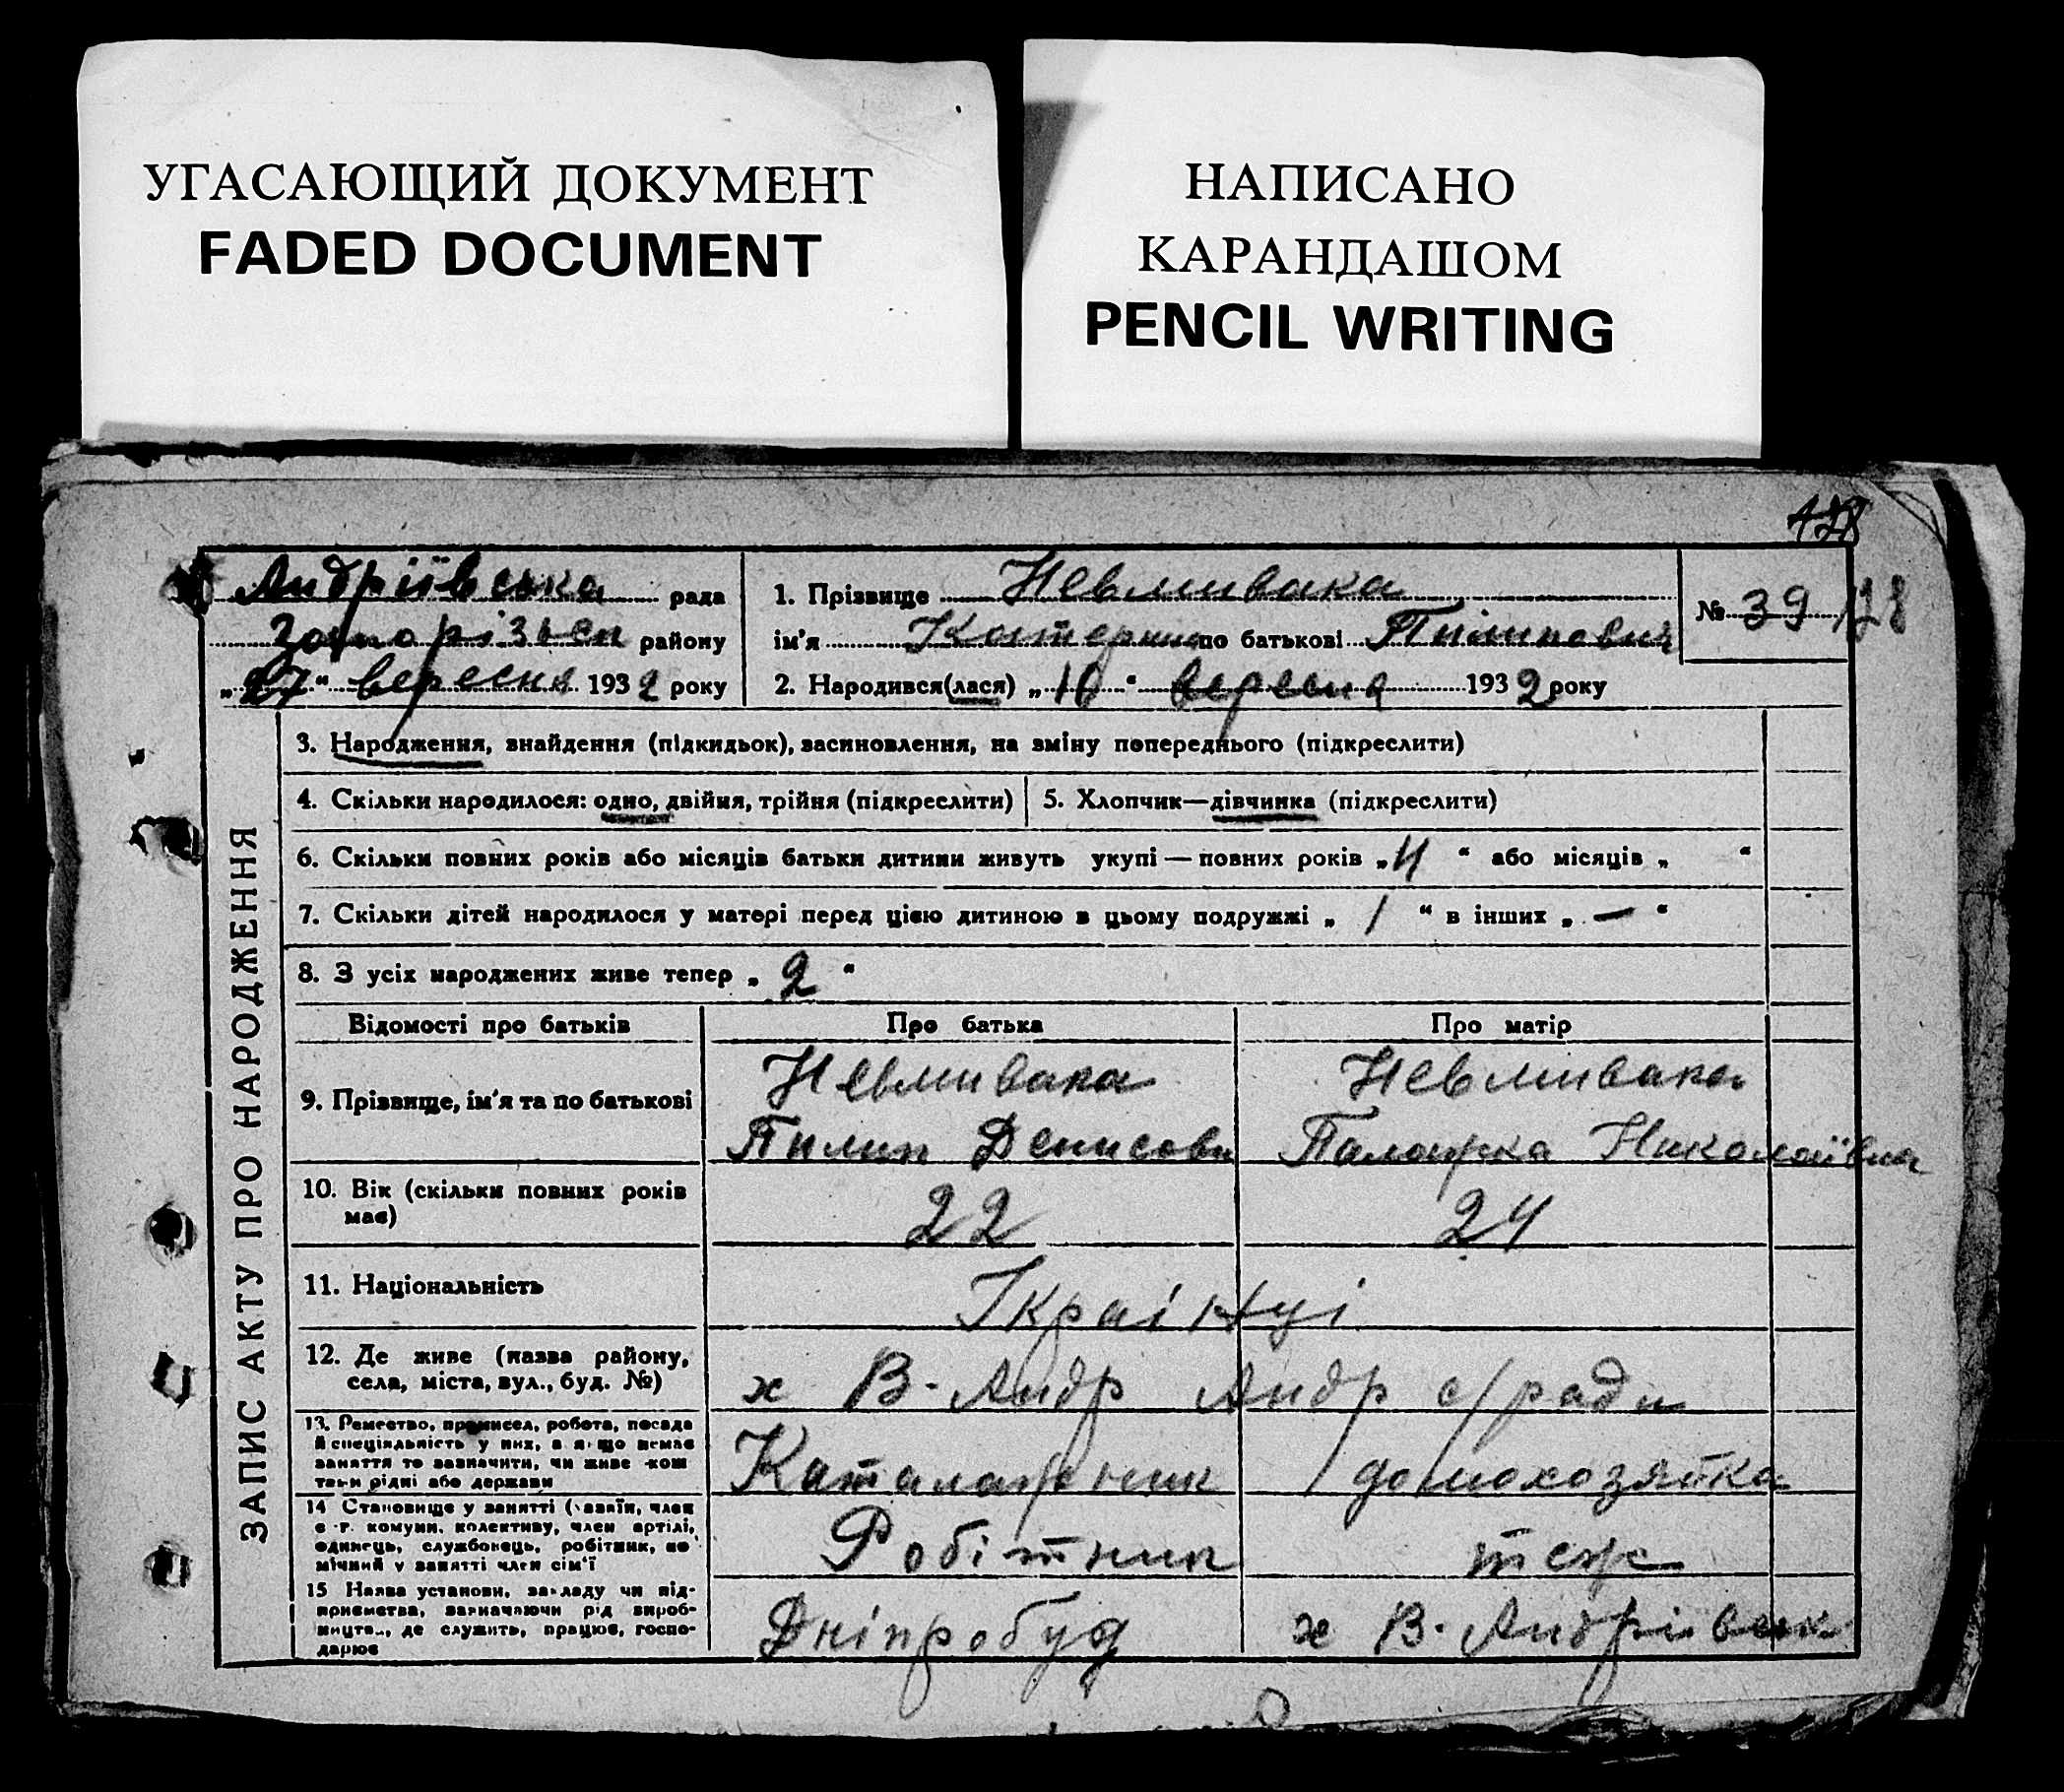 УГАСАЮЩИЙ ДОКУМЕНТ
FADED DOCUMENT
НАПИСАНО
КАРАНДАШОМ
PENCIL WRITING
Андріївська рада
Запорізьк району
„27“ вересня 1932 року
1. Прізвище Невмивака
ім'я Катерина по батькові Пилиповна
№ 39
2. Народився(лася) „16“ вересня 1932 року
ЗАПИС АКТУ ПРО НАРОДЖЕННЯ
3. Народження, знайдення (підкидьок), засиновлення, на зміну попереднього (підкреслити)
4. Скільки народилося: одно, двійня, трійня (підкреслити)
5. Хлопчик—дівчинка (підкреслити)
6. Скільки повних років або місяців батьки дитини живуть укупі — повних років „4“ або місяців „ “
7. Скільки дітей народилося у матері перед цією дитиною в цьому подружжі „1“ в інших „—“
8. З усіх народжених живе тепер „2“
Відомості про батьків Про батька Про матір
9. Прізвище, ім'я та по батькові
Невмивака
Пилип Денисови
Невмивака
Палажка Николаївна
10. Вік (скільки повних років
має)
22
24
11. Національність
Українці
12. Де живе (назва району,
села, міста, вул., буд. №)
х В-Андр Андр с/ради
13. Ремество, промисел, робота, посада
й спеціяльність у них, а якщо немає
заняття то зазначити, чи живе кош
тами рідні або держави
Каталажник
домохозяйка
14 Становище у занятті (хазяїн, член
с.-г. комуни, колективу, член артілі,
одинець, службовець, робітник, по
мічний у занятті член сім'ї
Робітник
теж
15 Назва установи, закладу чи під-
приємства, зазначаючи рід вироб-
ництв., де служить, працює, госпо-
дарює
Дніпробуд
х В-Андрівськ